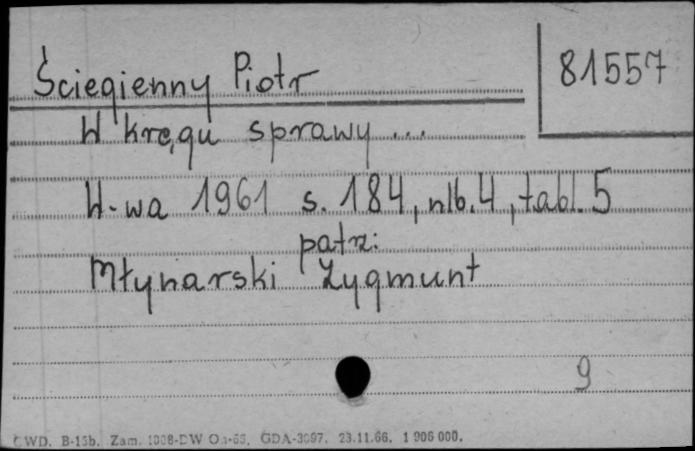 Ściegienny Piotr
81557
W kręgu sprawy ...
W-wa 1961 s. 184, nlb. 4, tabl. 5
patrz:
Młynarski Zygmunt
9
CWD. B-15b. Zam. 1008-DW Oa-65. GDA-3097. 23.11.66. 1 906 000.